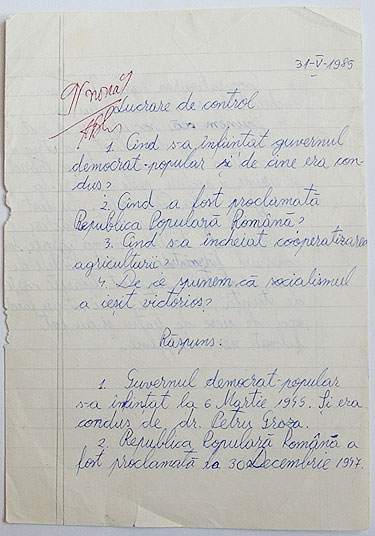 31-V-1989
9 (nouă)
Lucrare de control
1. Cînd s-a înfiintat guvernul
democrat-popular și de cine era con-
dus?
2. Cînd a fost proclamată
Republica Populară Română?
3. Cînd s-a încheiat cooperatizarea
agriculturii?
4. De ce spunem că socialismul
a ieșit victorios?
Răspuns:
1. Guvernul democrat-popular
s-a înfiintat la 6 Martie 1945. Și era
condus de dr. Petru Groza.
2. Republica Populară Română a
fost proclamată la 30 Decembrie 1947.